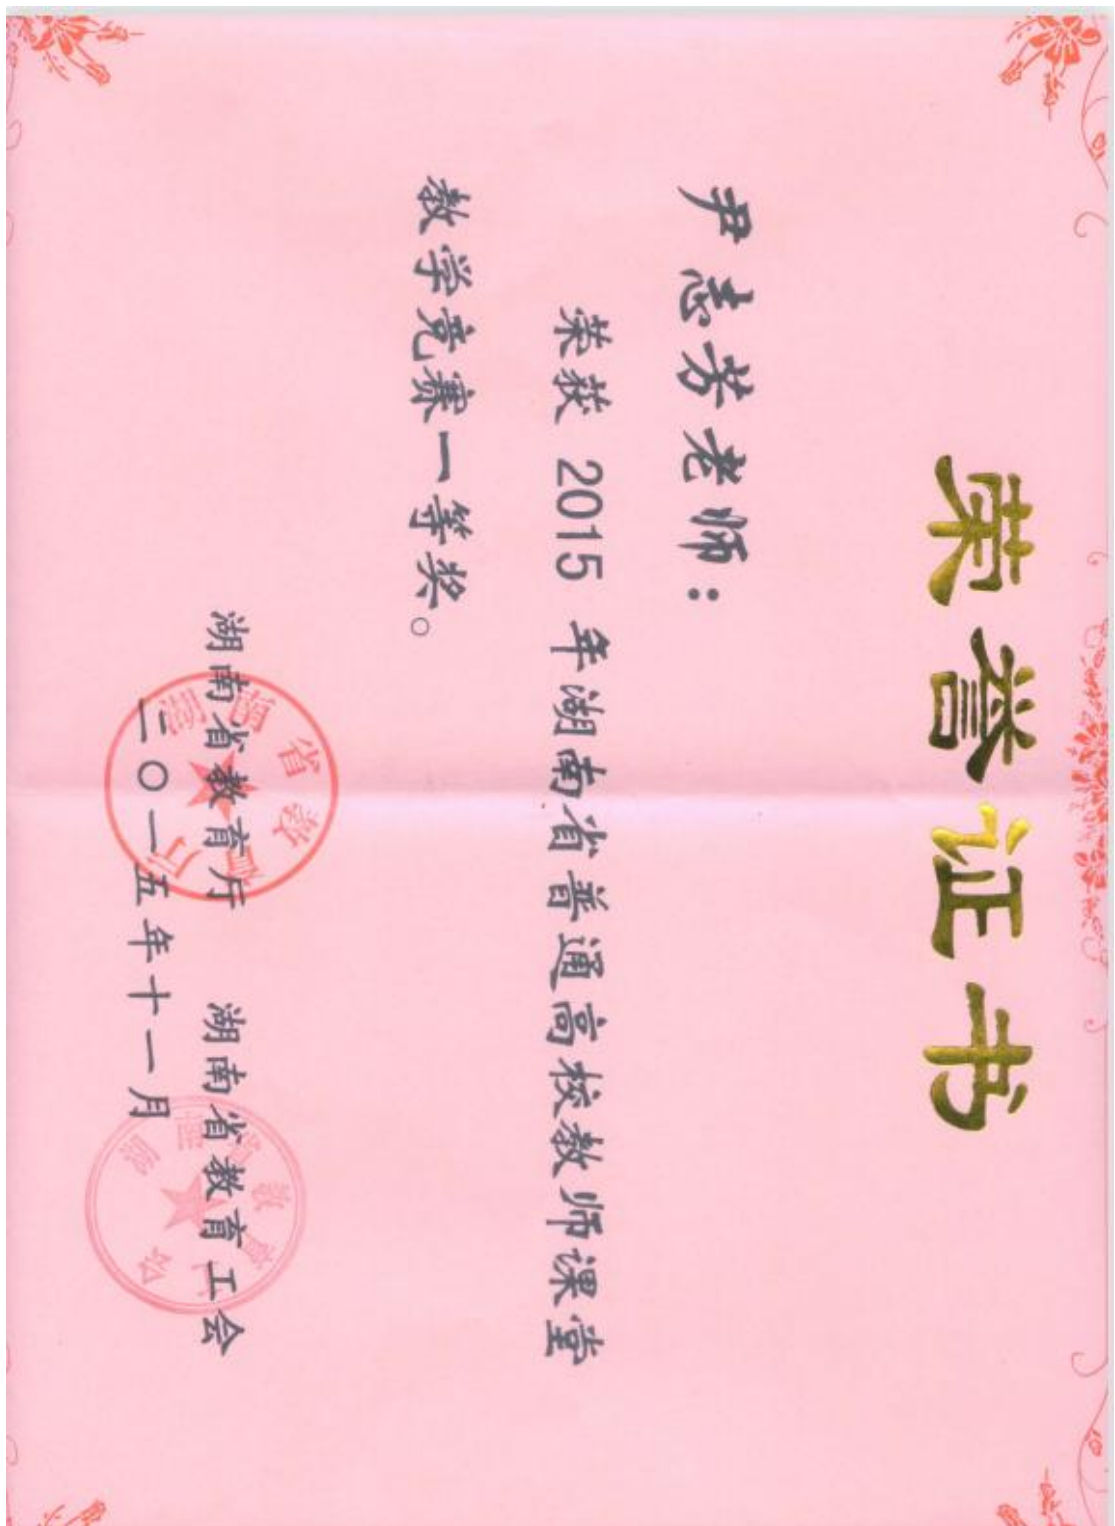 荣誉证书
尹志芳老师：
荣获 2015 年湖南省普通高校教师课堂
教学竞赛一等奖。
湖南省教育厅 湖南省教育工会
二〇一五年十一月
湖南省教育厅
湖南省教育工会